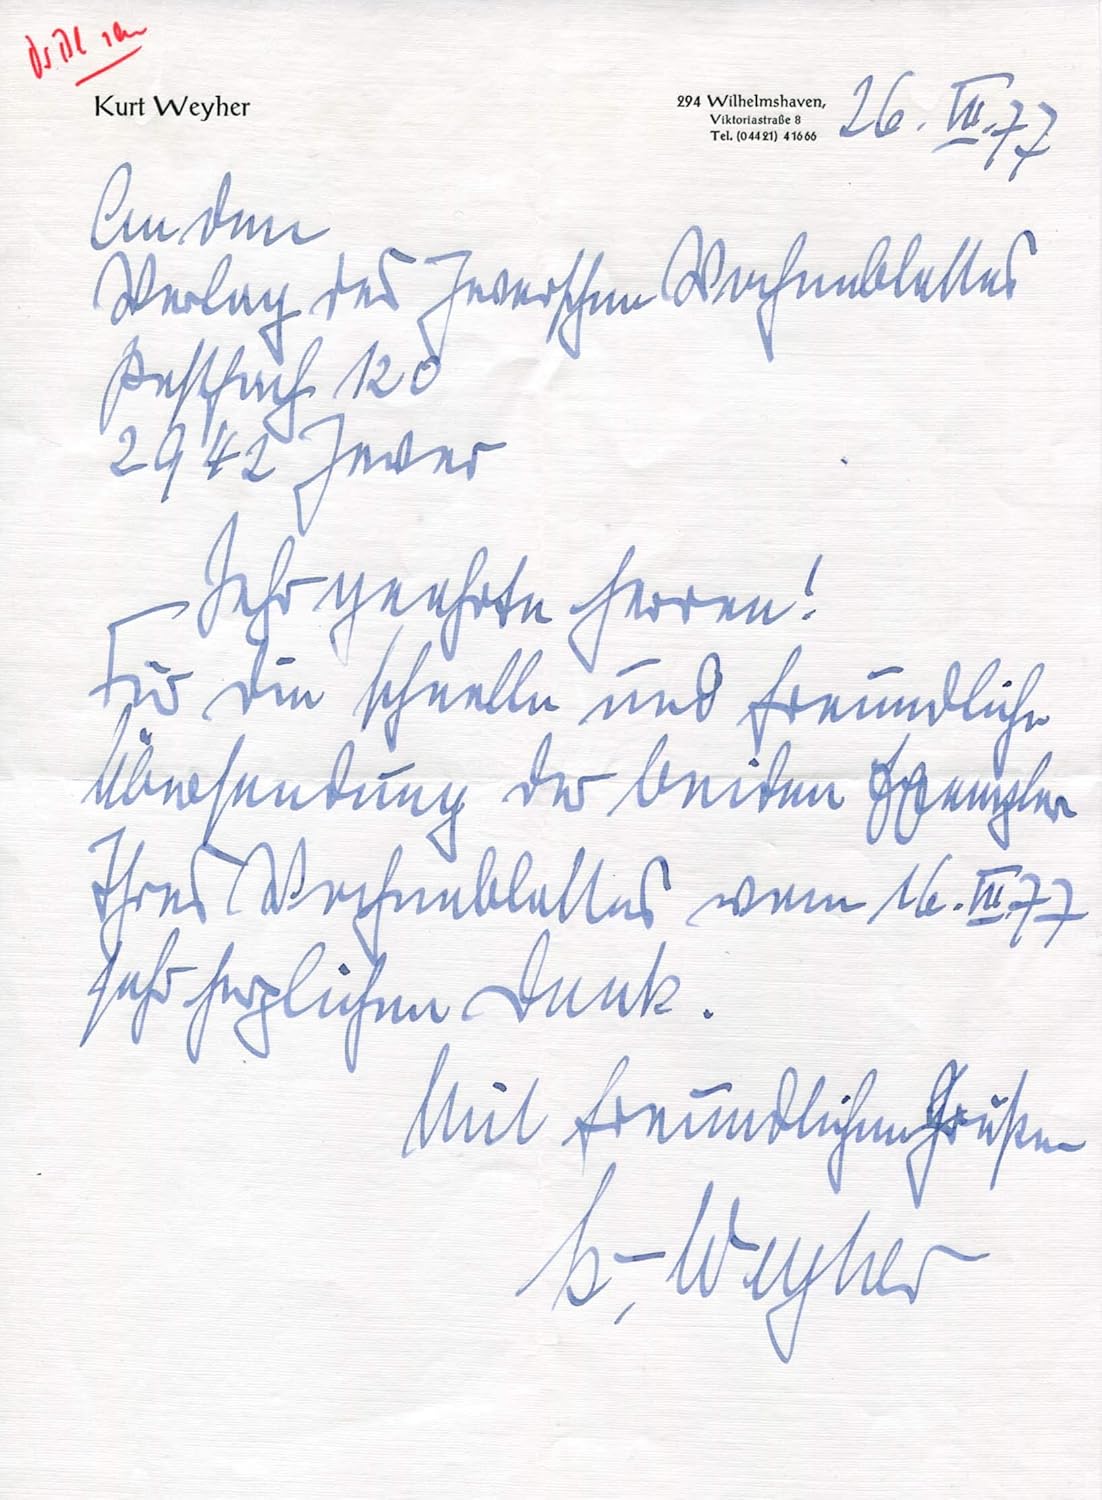 Kurt Weyher
294 Wilhelmshaven,
Viktoriastraße 8
Tel. (04421) 41666
26. VII. 77
An den
Verlag des Jeverschen Wochenblattes
Postfach 120
2942 Jever
Sehr geehrte Herren!
Für die schnelle und freundliche
Übersendung der beiden Exemplare
Ihres Wochenblattes vom 16. VII. 77
sehr herzlichen Dank.
Mit freundlichen Grüßen
K. Weyher